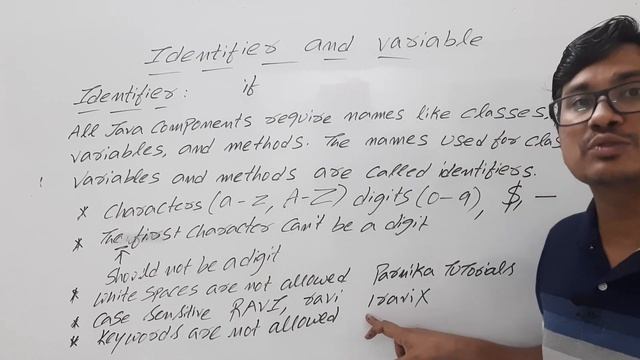 Identifier and variable
Identifier : if
All Java components require names like classes,
variables, and methods. The names used for clas
variables and methods are called identifiers.
* characters (a-z, A-Z) digits (0-9), $, _
* The first character can't be a digit
↑
should not be a digit
* white spaces are not allowed Parnika TUTorials
* case sensitive RAVI, ravi 1ravi X
* keywords are not allowed